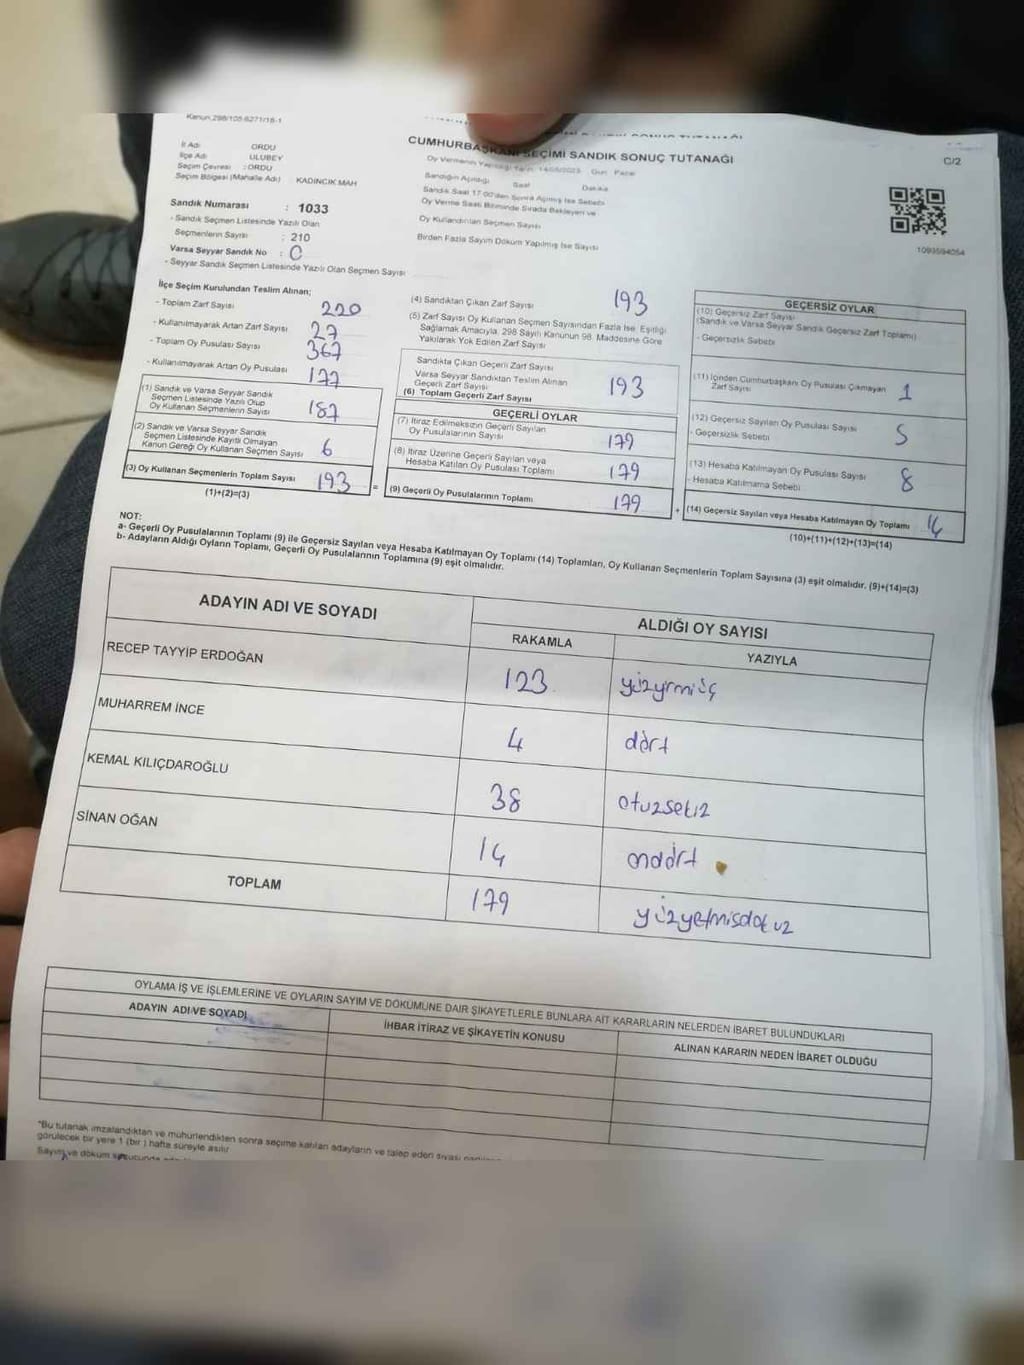 Kanun,298/105-6271/18-1
CUMHURBAŞKANI SEÇİMİ SANDIK SONUÇ TUTANAĞI
C/2
İl Adı ORDU
İlçe Adı ULUBEY
Seçim Çevresi : ORDU
Seçim Bölgesi (Mahalle Adı) : KADINCIK MAH
Sandık Numarası : 1033
- Sandık Seçmen Listesinde Yazılı Olan
Seçmenlerin Sayısı : 210
Varsa Seyyar Sandık No : 0
- Seyyar Sandık Seçmen Listesinde Yazılı Olan Seçmen Sayısı
Oy Vermenin Yapıldığı Tarih: 14/05/2023 Gün Pazar
Sandığın Açıldığı Saat Dakika
Sandık Saat 17:00'den Sonra Açılmış İse Sebebi
Oy Verme Saati Bitiminde Sırada Bekleyen ve
Oy Kullandırılan Seçmen Sayısı
Birden Fazla Sayım Döküm Yapılmış İse Sayısı
1093594054
İlçe Seçim Kurulundan Teslim Alınan;
- Toplam Zarf Sayısı 220
- Kullanılmayarak Artan Zarf Sayısı 27
- Toplam Oy Pusulası Sayısı 367
- Kullanılmayarak Artan Oy Pusulası 177
(1) Sandık ve Varsa Seyyar Sandık
Seçmen Listesinde Yazılı Olup
Oy Kullanan Seçmenlerin Sayısı 187
(2) Sandık ve Varsa Seyyar Sandık
Seçmen Listesinde Kayıtlı Olmayan
Kanun Gereği Oy Kullanan Seçmen Sayısı 6
(3) Oy Kullanan Seçmenlerin Toplam Sayısı 193
(1)+(2)=(3)
=
(4) Sandıktan Çıkan Zarf Sayısı 193
(5) Zarf Sayısı Oy Kullanan Seçmen Sayısından Fazla İse, Eşitliği
Sağlamak Amacıyla, 298 Sayılı Kanunun 98. Maddesine Göre
Yakılarak Yok Edilen Zarf Sayısı
Sandıkta Çıkan Geçerli Zarf Sayısı
Varsa Seyyar Sandıktan Teslim Alınan
Geçerli Zarf Sayısı
(6) Toplam Geçerli Zarf Sayısı 193
GEÇERLİ OYLAR
(7) İtiraz Edilmeksizin Geçerli Sayılan
Oy Pusulalarının Sayısı 179
(8) İtiraz Üzerine Geçerli Sayılan veya
Hesaba Katılan Oy Pusulası Toplamı 179
(9) Geçerli Oy Pusulalarının Toplamı 179
+
GEÇERSİZ OYLAR
(10) Geçersiz Zarf Sayısı
(Sandık ve Varsa Seyyar Sandık Geçersiz Zarf Toplamı)
- Geçersizlik Sebebi
(11) İçinden Cumhurbaşkanı Oy Pusulası Çıkmayan
Zarf Sayısı 1
(12) Geçersiz Sayılan Oy Pusulası Sayısı 5
- Geçersizlik Sebebi
(13) Hesaba Katılmayan Oy Pusulası Sayısı 8
- Hesaba Katılmama Sebebi
(14) Geçersiz Sayılan veya Hesaba Katılmayan Oy Toplamı 14
(10)+(11)+(12)+(13)=(14)
NOT:
a- Geçerli Oy Pusulalarının Toplamı (9) ile Geçersiz Sayılan veya Hesaba Katılmayan Oy Toplamı (14) Toplamları, Oy Kullanan Seçmenlerin Toplam Sayısına (3) eşit olmalıdır. (9)+(14)=(3)
b- Adayların Aldığı Oyların Toplamı, Geçerli Oy Pusulalarının Toplamına (9) eşit olmalıdır.
ADAYIN ADI VE SOYADI
ALDIĞI OY SAYISI
RAKAMLA YAZIYLA
RECEP TAYYİP ERDOĞAN 123 yüzyirmiüç
MUHARREM İNCE 4 dört
KEMAL KILIÇDAROĞLU 38 otuzsekiz
SİNAN OĞAN 14 ondört
TOPLAM 179
OYLAMA İŞ VE İŞLEMLERİNE VE OYLARIN SAYIM VE DÖKÜMÜNE DAİR ŞİKAYETLERLE BUNLARA AİT KARARLARIN NELERDEN İBARET BULUNDUKLARI
ADAYIN ADI VE SOYADI
İHBAR İTİRAZ VE ŞİKAYETİN KONUSU
ALINAN KARARIN NEDEN İBARET OLDUĞU
*Bu tutanak imzalandıktan ve mühürlendikten sonra seçime katılan adayların ve talep eden siyasi
görülecek bir yere 1 (bir) hafta süreyle asılır
Sayım ve döküm